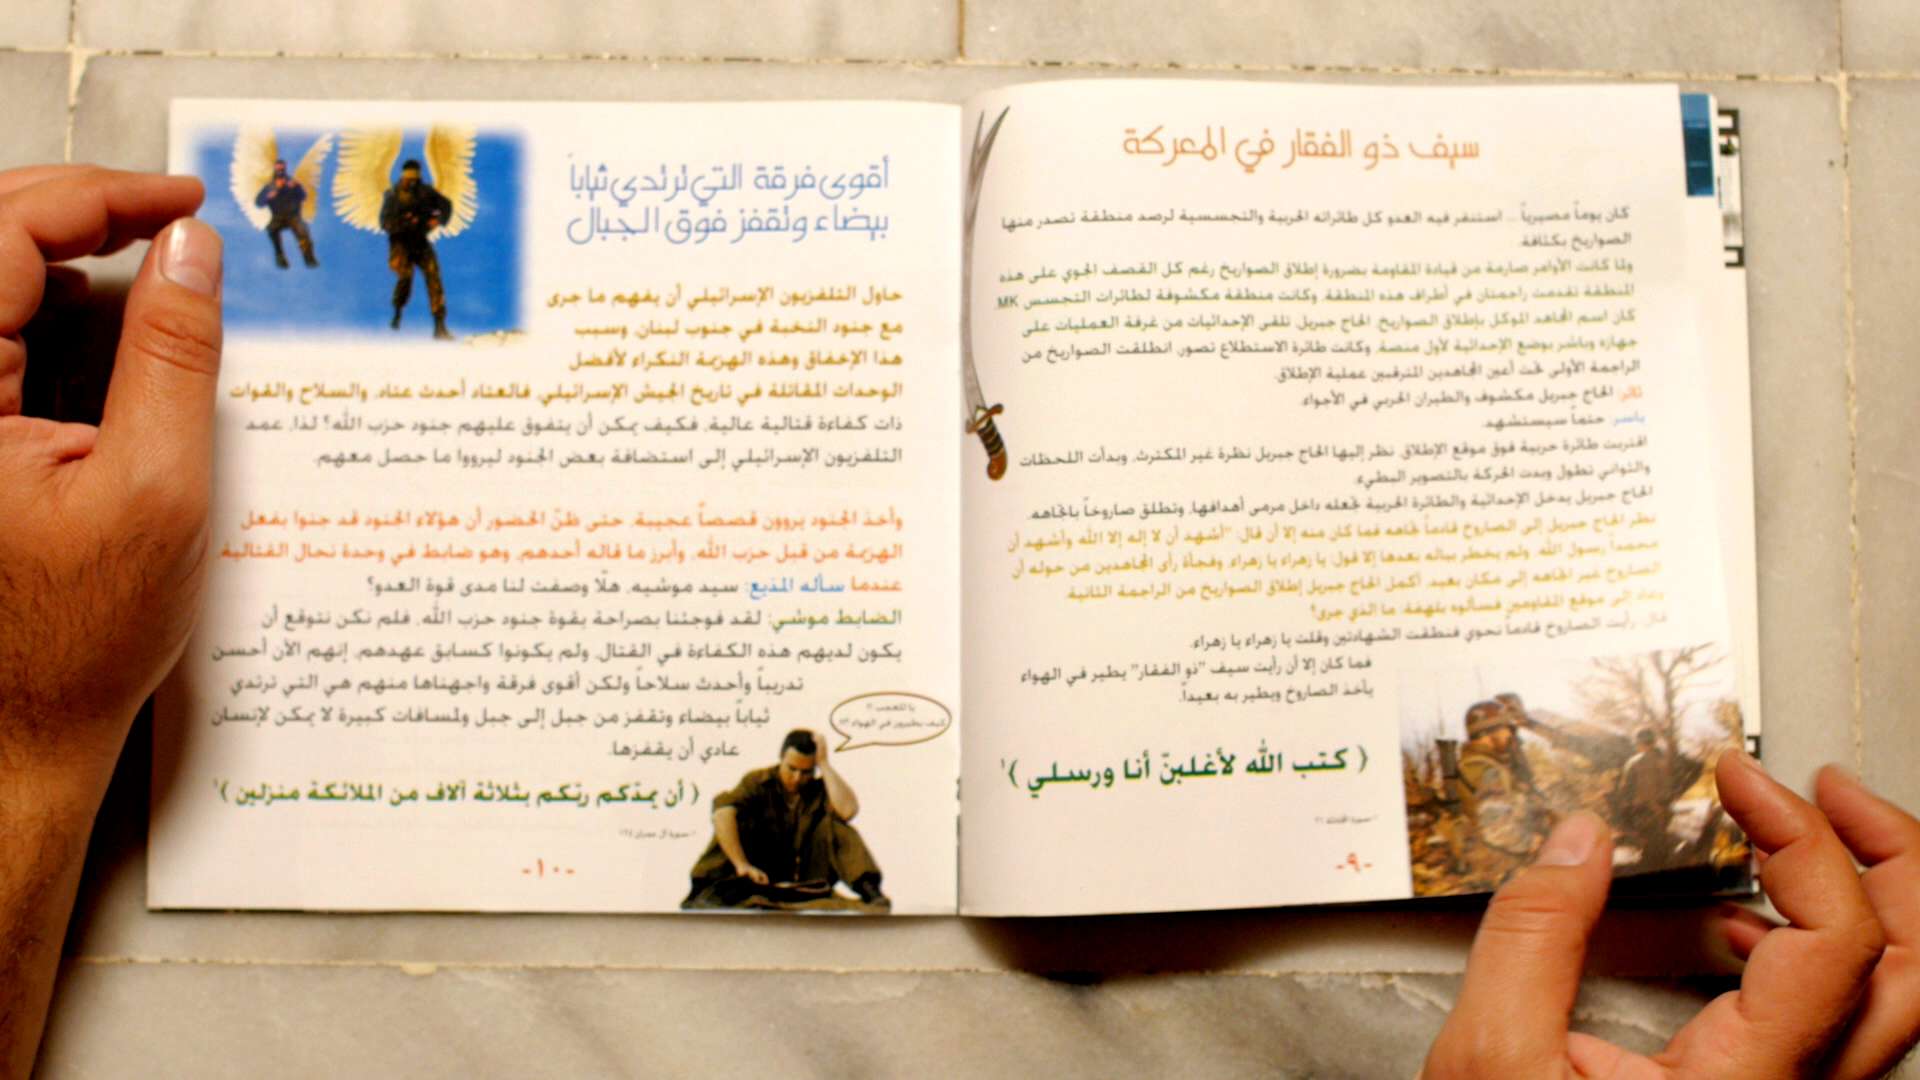 سيف ذو الفقار في المعركة
كان يوماً مصيرياً... استنفر فيه العدو كل طائراته الحربية والتجسسية لرصد منطقة تصدر منها
الصواريخ بكثافة.
ولما كانت الأوامر صارمة من قيادة المقاومة بضرورة إطلاق الصواريخ رغم كل القصف الجوي على هذه
المنطقة تقدمت راجمتان في أطراف هذه المنطقة، وكانت منطقة مكشوفة لطائرات التجسس MK
كان اسم المجاهد الموكل بإطلاق الصواريخ، الحاج جبريل، تلقى الإحداثيات من غرفة العمليات على
جهازه وباشر بوضع الإحداثية لأول منصة، وكانت طائرة الاستطلاع تصور، انطلقت الصواريخ من
الراجمة الأولى تحت أعين المجاهدين المترقبين عملية الإطلاق.
ثائر: الحاج جبريل مكشوف والطيران الحربي في الأجواء.
ياسر: حتماً سيستشهد.
اقتربت طائرة حربية فوق موقع الإطلاق، نظر إليها الحاج جبريل نظرة غير المكترث، وبدأت اللحظات
والثواني تطول وبدت الحركة بالتصوير البطيء.
الحاج جبريل يدخل الإحداثية والطائرة الحربية تجعله داخل مرمى أهدافها، وتطلق صاروخاً باتجاهه.
نظر الحاج جبريل إلى الصاروخ قادماً تجاهه فما كان منه إلا أن قال: "أشهد أن لا إله إلا الله وأشهد أن
محمداً رسول الله، ولم يخطر بباله بعدها إلا قول: يا زهراء يا زهراء، وفجأة رأى المجاهدين من حوله أن
الصاروخ غير اتجاهه إلى مكان بعيد، أكمل الحاج جبريل إطلاق الصواريخ من الراجمة الثانية،
وعاد إلى موقع المقاومين فسألوه بلهفة: ما الذي جرى؟
قال: رأيت الصاروخ قادماً نحوي فنطقت الشهادتين وقلت يا زهراء يا زهراء.
فما كان إلا أن رأيت سيف "ذو الفقار" يطير في الهواء
يأخذ الصاروخ ويطير به بعيداً.
( كتب الله لأغلبنّ أنا ورسلي )١
-٩-
أقوى فرقة التي ترتدي ثياباً
بيضاء وتقفز فوق الجبال
حاول التلفزيون الإسرائيلي أن يفهم ما جرى
مع جنود النخبة في جنوب لبنان، وسبب
هذا الإخفاق وهذه الهزيمة النكراء لأفضل
الوحدات المقاتلة في تاريخ الجيش الإسرائيلي، فالعتاد أحدث عتاد، والسلاح والقوات
ذات كفاءة قتالية عالية، فكيف يمكن أن يتفوق عليهم جنود حزب الله؟ لذا، عمد
التلفزيون الإسرائيلي إلى استضافة بعض الجنود ليرووا ما حصل معهم.
وأخذ الجنود يروون قصصاً عجيبة، حتى ظنّ الحضور أن هؤلاء الجنود قد جنوا بفعل
الهزيمة من قبل حزب الله، وأبرز ما قاله أحدهم، وهو ضابط في وحدة نحال القتالية،
عندما سأله المذيع: سيد موشيه، هلّا وصفت لنا مدى قوة العدو؟
الضابط موشي: لقد فوجئنا بصراحة بقوة جنود حزب الله، فلم نكن نتوقع أن
يكون لديهم هذه الكفاءة في القتال، ولم يكونوا كسابق عهدهم، إنهم الآن أحسن
تدريباً وأحدث سلاحاً ولكن أقوى فرقة واجهناها منهم هي التي ترتدي
ثياباً بيضاء وتقفز من جبل إلى جبل ولمسافات كبيرة لا يمكن لإنسان
عادي أن يقفزها.
يا للعجب !!
كيف يطيرون في الهواء ؟!
( أن يمدّكم ربّكم بثلاثة آلاف من الملائكة منزلين )١
١- سورة آل عمران ١٢٤
-١٠-